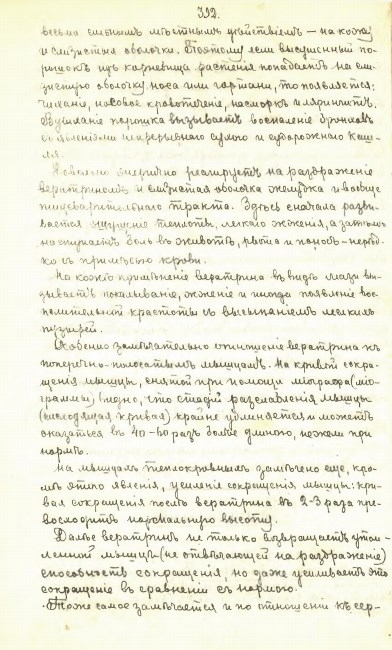 392.
весьма сильнымъ мѣстнымъ дѣйствіемъ – на кожу
и слизистыя оболочки. Поэтому если высушенный по-
рошокъ изъ корневища растенія попадаетъ на сли-
зистую оболочку носа или гортани, то появляется:
чиханіе, носовое кровотеченіе, насморкъ и ларингитъ.
Вдыханіе порошка вызываетъ воспаленіе бронховъ
съ явленіями непрерывнаго сухого и судорожнаго каш-
ля.
Довольно энергично реагируетъ на раздраженіе
вератриномъ и слизистая оболочка желудка и вообще
пищеварительнаго тракта. Здѣсь сначала разви-
вается ощущеніе теплоты, легкаго жженія, а затѣмъ
наступаетъ боль въ животѣ, рвота и поносъ – нерѣд-
ко съ примѣсью крови.
На кожѣ примѣненіе вератрина въ видѣ мази вы-
зываетъ покалываніе, жженіе и иногда появленіе вос-
полительной красноты съ высыпаніемъ мелкихъ
пузырей.
Особенно замѣчательно отношеніе вератрина къ
поперечно-полосатымъ мышцамъ. На кривой сокра-
щенія мышцы, снятой при помощи міографа (міо-
граммы) видно, что стадій разслабленія мышцы
(нисходящая кривая) крайне удлиняется и можетъ
оказаться въ 40-60 разъ болѣе длиною, нежели при
нормѣ.
На мышцахъ теплокровныхъ замѣчено еще, кро-
мѣ этого явленія, усиленіе сокращенія мышцы: кри-
вая сокращенія послѣ вератрина въ 2-3 раза пре-
восходитъ нормальную высоту.
Далѣе вератринъ не только возвращаетъ утом-
ленной мышцѣ (не отвѣчающей на раздраженіе)
способность сокращенія, но даже усиливаетъ это
сокращеніе въ сравненіи съ нормою.
Тоже самое замѣчается и по отношеніи къ сер-